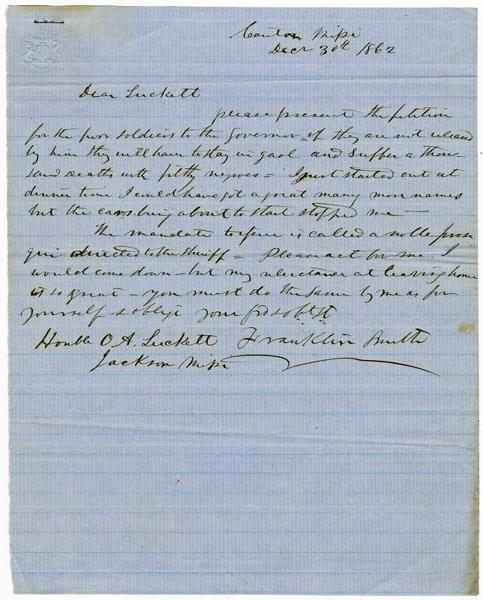 Canton Mipi
Decr 30th 1862
Dear Luckett
please present the petition
for the poor soldiers to the Governor - if they are not released
by him they will have to stay in gaol and suffer a thou
sand deaths with filthy negroes = I just started out at
dinner time I could have got a great many more names
but the cars being about to start stopped me -
The mandate to free is called a nolle pros
qui directed to the Sheriff = Please act for me. I
would come down - but my reluctance at leaving home
is so great - you must do the same by me as for
yourself & oblige your frd & obt St
Honble O. A. Luckett Franklin Smith
Jackson Mipi